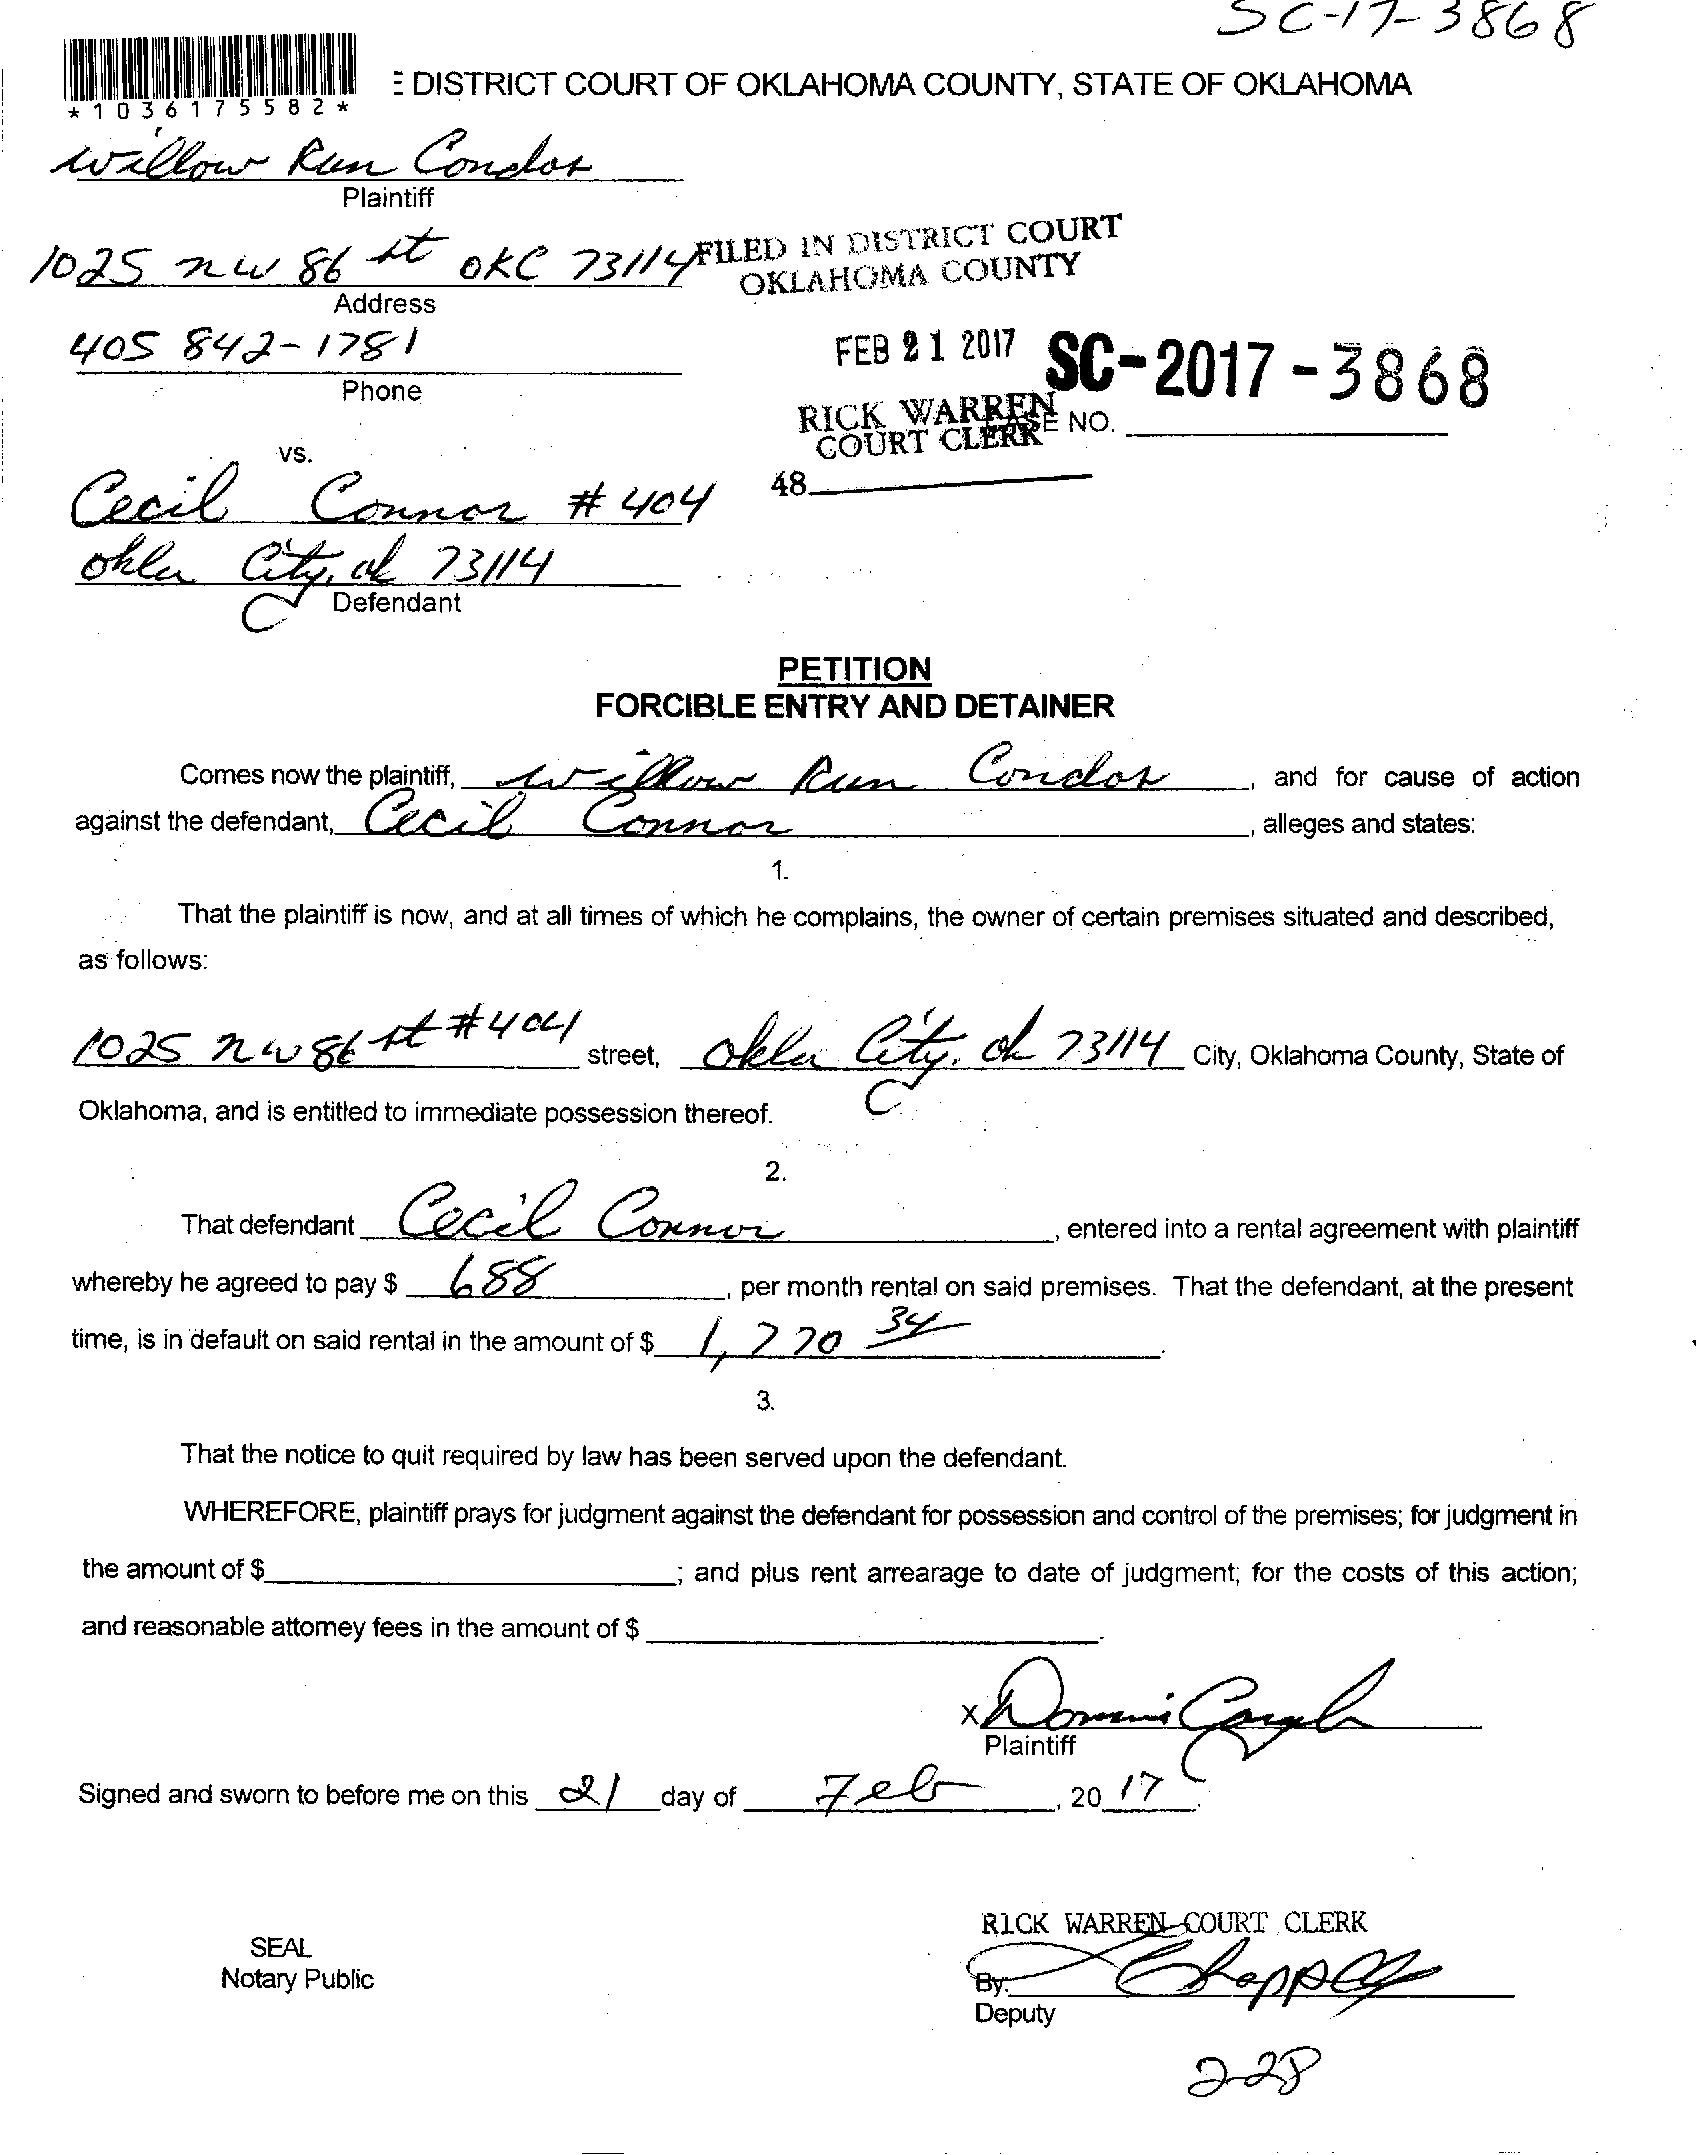 SC-17-3868
*1036175582*
E DISTRICT COURT OF OKLAHOMA COUNTY, STATE OF OKLAHOMA
Willow Run Condos
Plaintiff
1025 NW 86 St OKC 73114
FILED IN DISTRICT COURT
OKLAHOMA COUNTY
Address
405 842-1781
Phone
FEB 21 2017
SC-2017-3868
RICK WARREN
COURT CLERK
CASE NO.
48
vs.
Cecil Connor #404
Okla City, Ok 73114
Defendant
PETITION
FORCIBLE ENTRY AND DETAINER
Comes now the plaintiff, Willow Run Condos, and for cause of action
against the defendant, Cecil Connor, alleges and states:
1.
That the plaintiff is now, and at all times of which he complains, the owner of certain premises situated and described,
as follows:
1025 NW 86 St #404 street, Okla City, Ok 73114 City, Oklahoma County, State of
Oklahoma, and is entitled to immediate possession thereof.
2.
That defendant Cecil Connor, entered into a rental agreement with plaintiff
whereby he agreed to pay $ 688, per month rental on said premises. That the defendant, at the present
time, is in default on said rental in the amount of $ 1,770 34.
3.
That the notice to quit required by law has been served upon the defendant.
WHEREFORE, plaintiff prays for judgment against the defendant for possession and control of the premises; for judgment in
the amount of $; and plus rent arrearage to date of judgment; for the costs of this action;
and reasonable attorney fees in the amount of $.
X
Plaintiff
Signed and sworn to before me on this 21 day of Feb, 2017.
RICK WARREN COURT CLERK
SEAL
Notary Public
By:
Deputy
228